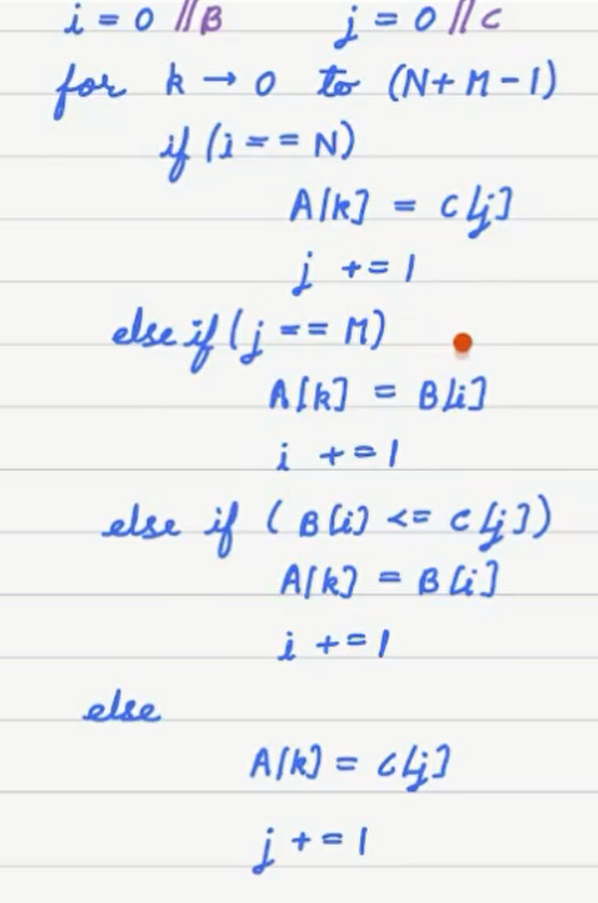 i = 0 //B j = 0 //C
for k → 0 to (N+M-1)
if (i == N)
A[k] = C[j]
j += 1
else if (j == M)
A[k] = B[i]
i += 1
else if (B[i] <= C[j])
A[k] = B[i]
i += 1
else
A[k] = C[j]
j += 1